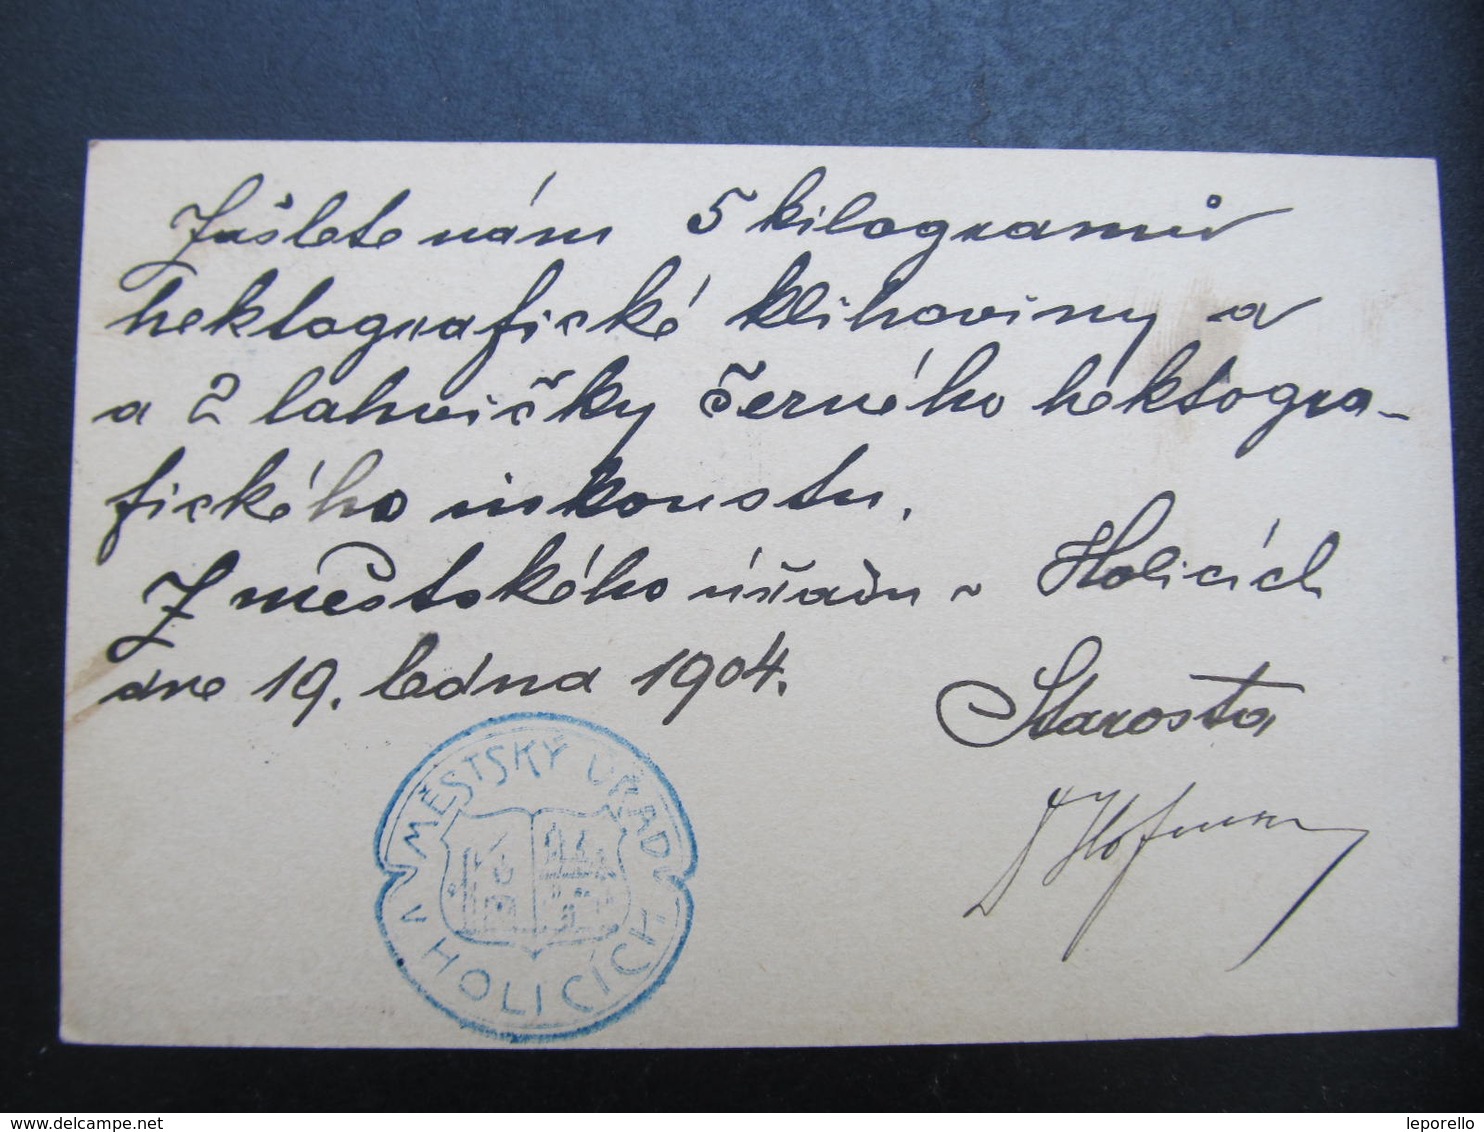 Zašlete nám 5 kilogramů
hektografické klihoviny a
a 2 lahvičky černého hektogra-
fického inkoustu.
Z městského úřadu v Holicích
dne 19. ledna 1904.
Starosta
Hofman
MĚSTSKÝ ÚŘAD
V HOLICÍCH
leporello